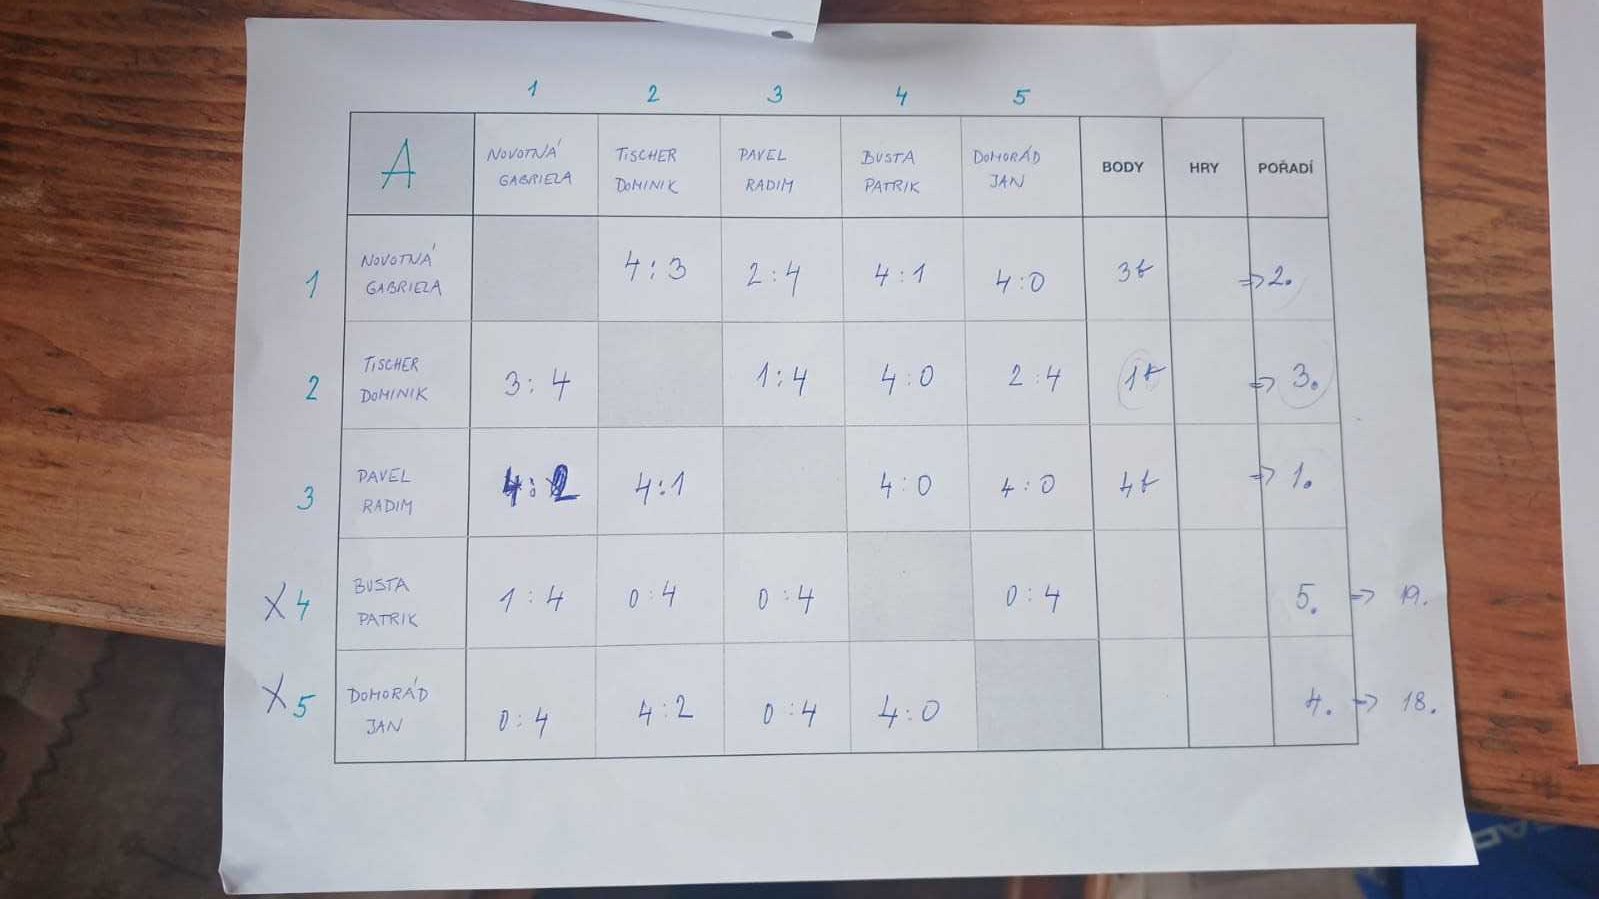 1 2 3 4 5
A NOVOTNÁ TISCHER PAVEL BUSTA DOMORÁD BODY HRY POŘADÍ
GABRIELA DOMINIK RADIM PATRIK JAN
1 NOVOTNÁ 4:3 2:4 4:1 4:0 3b ⇒ 2.
GABRIELA
2 TISCHER 3:4 1:4 4:0 2:4 1b ⇒ 3.
DOMINIK
3 PAVEL 4:2 4:1 4:0 4:0 4b ⇒ 1.
RADIM
X 4 BUSTA 1:4 0:4 0:4 0:4 5. ⇒ 19.
PATRIK
X 5 DOMORÁD 0:4 4:2 0:4 4:0 4. ⇒ 18.
JAN